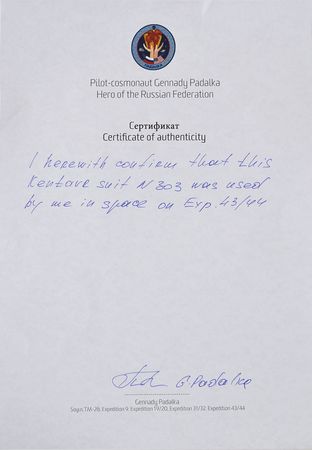 PADALKA
Pilot-cosmonaut Gennady Padalka
Hero of the Russian Federation
Сертификат
Certificate of authenticity
I herewith confirm that this
Kentavr suit N 303 was used
by me in space on Exp. 43/44
G Padalka
Gennady Padalka
Soyuz TM-28, Expedition 9, Expedition 19/20, Expedition 31/32, Expedition 43/44